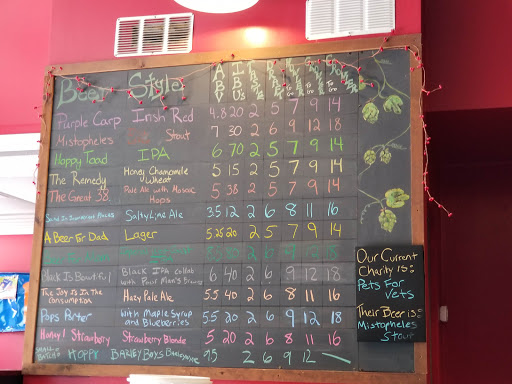 Beer Style ABV IBUs
Purple Carp Irish Red 4.8 20 2 5 7 9 14
Mistopheles Stout 7 30 2 6 9 12 18
Hoppy Toad IPA 6 70 2 5 7 9 14
The Remedy Honey Chamomile Wheat 5 15 2 5 7 9 14
The Great 38. Pale Ale with Mosaic Hops 5 38 2 5 7 9 14
Salty Lime Ale 3.5 12 2 6 8 11 16
A Beer For Dad Lager 5.25 20 2 5 7 9 14
Black Is Beautiful Black IPA collab with Poor Man's 6 40 2 6 9 12 18
The Joy Is In The Consumption Hazy Pale Ale 5.5 40 2 6 8 11 16
Pops Porter With Maple Syrup and Blueberries 5.5 20 2 6 9 12 18
Honey! Strawberry Strawberry Blonde 5 20 2 6 8 11 16
Hoppy Barley Boys 2 6 9 12
Our Current
Charity Is:
Pets For
Vets
Their Beer is:
Mistopheles
Stout